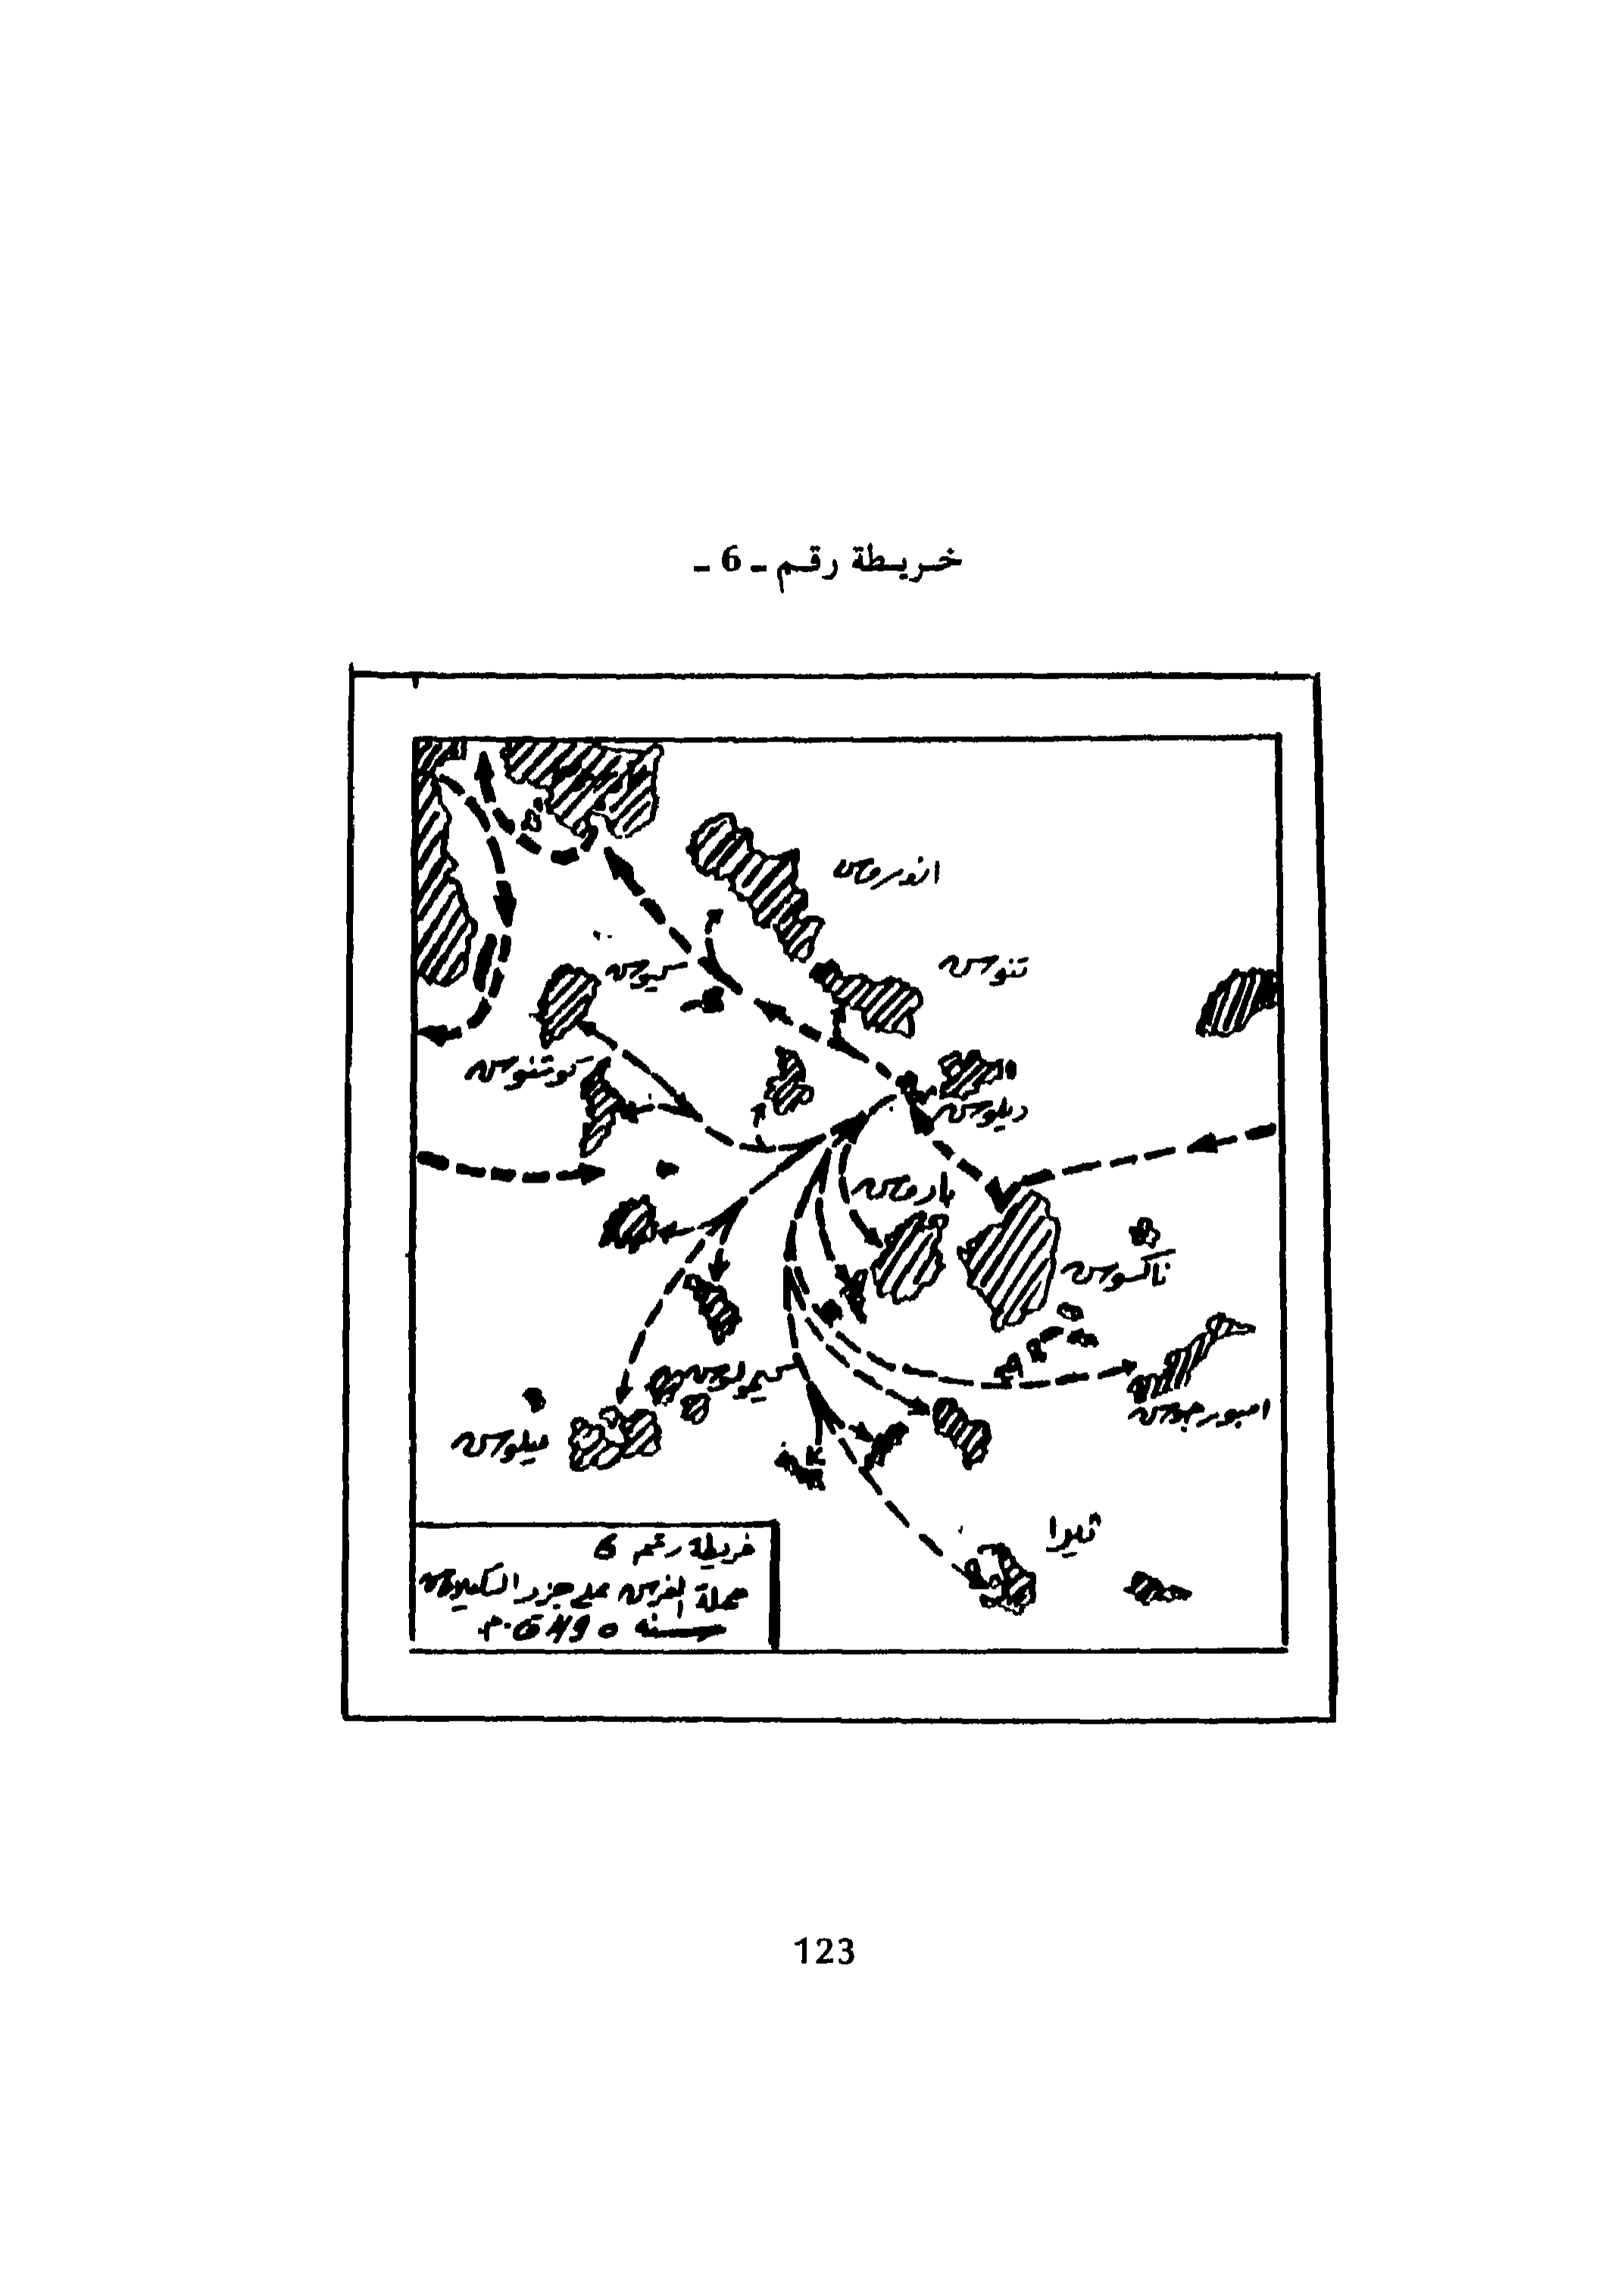 خريطة رقم - 6 -
اندروس
تنوس
سيروس
كوتنوس
ديلوس
باروس
ناكسوس
سيفنوس
امورجوس
ميلوس
ثيرا
خريطة رقم 6
حملة الفرس على جزر الكيكلاديس
سنة 490 ق.م.
123